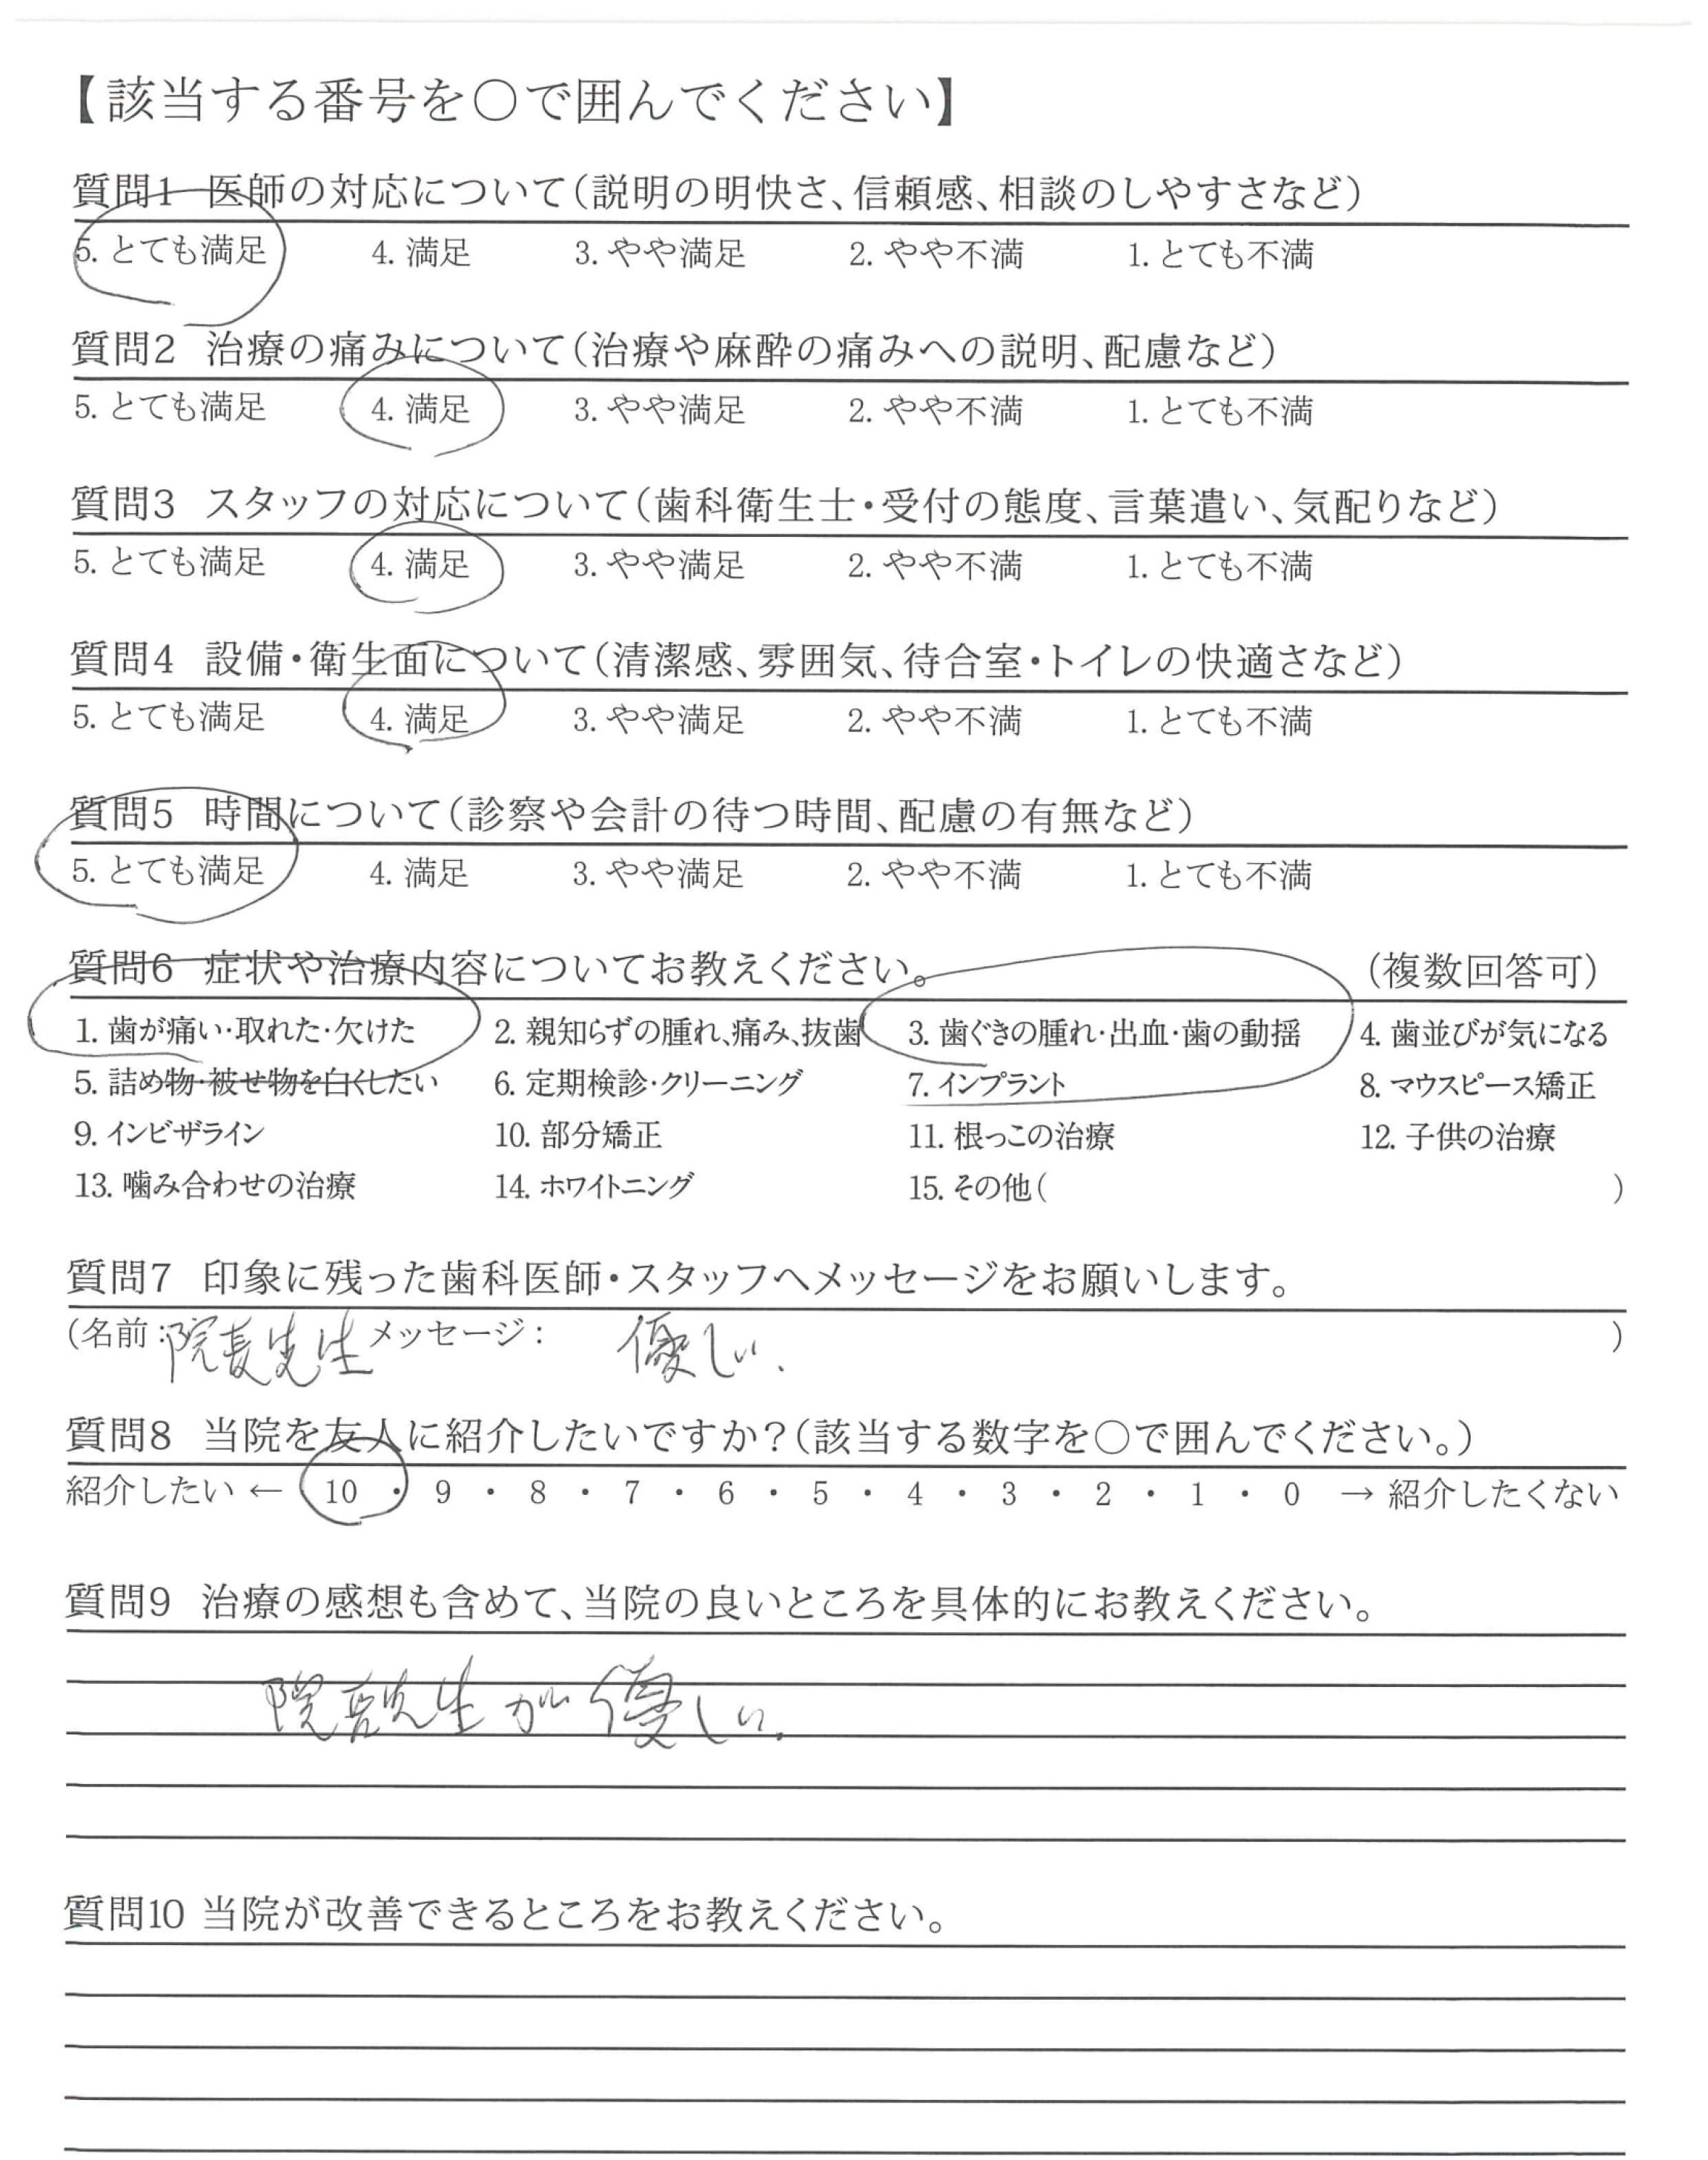 【該当する番号を○で囲んでください】
質問1 医師の対応について(説明の明快さ、信頼感、相談のしやすさなど)
5. とても満足 4. 満足 3. やや満足 2. やや不満 1. とても不満
質問2 治療の痛みについて(治療や麻酔の痛みへの説明、配慮など)
5. とても満足 4. 満足 3. やや満足 2. やや不満 1. とても不満
質問3 スタッフの対応について(歯科衛生士・受付の態度、言葉遣い、気配りなど)
5. とても満足 4. 満足 3. やや満足 2. やや不満 1. とても不満
質問4 設備・衛生面について(清潔感、雰囲気、待合室・トイレの快適さなど)
5. とても満足 4. 満足 3. やや満足 2. やや不満 1. とても不満
質問5 時間について(診察や会計の待つ時間、配慮の有無など)
5. とても満足 4. 満足 3. やや満足 2. やや不満 1. とても不満
質問6 症状や治療内容についてお教えください。 (複数回答可)
1. 歯が痛い・取れた・欠けた 2. 親知らずの腫れ、痛み、抜歯 3. 歯ぐきの腫れ・出血・歯の動揺 4. 歯並びが気になる
5. 詰め物・被せ物を白くしたい 6. 定期検診・クリーニング 7. インプラント 8. マウスピース矯正
9. インビザライン 10. 部分矯正 11. 根っこの治療 12. 子供の治療
13. 噛み合わせの治療 14. ホワイトニング 15. その他( )
質問7 印象に残った歯科医師・スタッフへメッセージをお願いします。
(名前:院長先生 メッセージ: 優しい. )
質問8 当院を友人に紹介したいですか?(該当する数字を○で囲んでください。)
紹介したい ← 10 ・ 9 ・ 8 ・ 7 ・ 6 ・ 5 ・ 4 ・ 3 ・ 2 ・ 1 ・ 0 → 紹介したくない
質問9 治療の感想も含めて、当院の良いところを具体的にお教えください。
院長先生が優しい.
質問10 当院が改善できるところをお教えください。